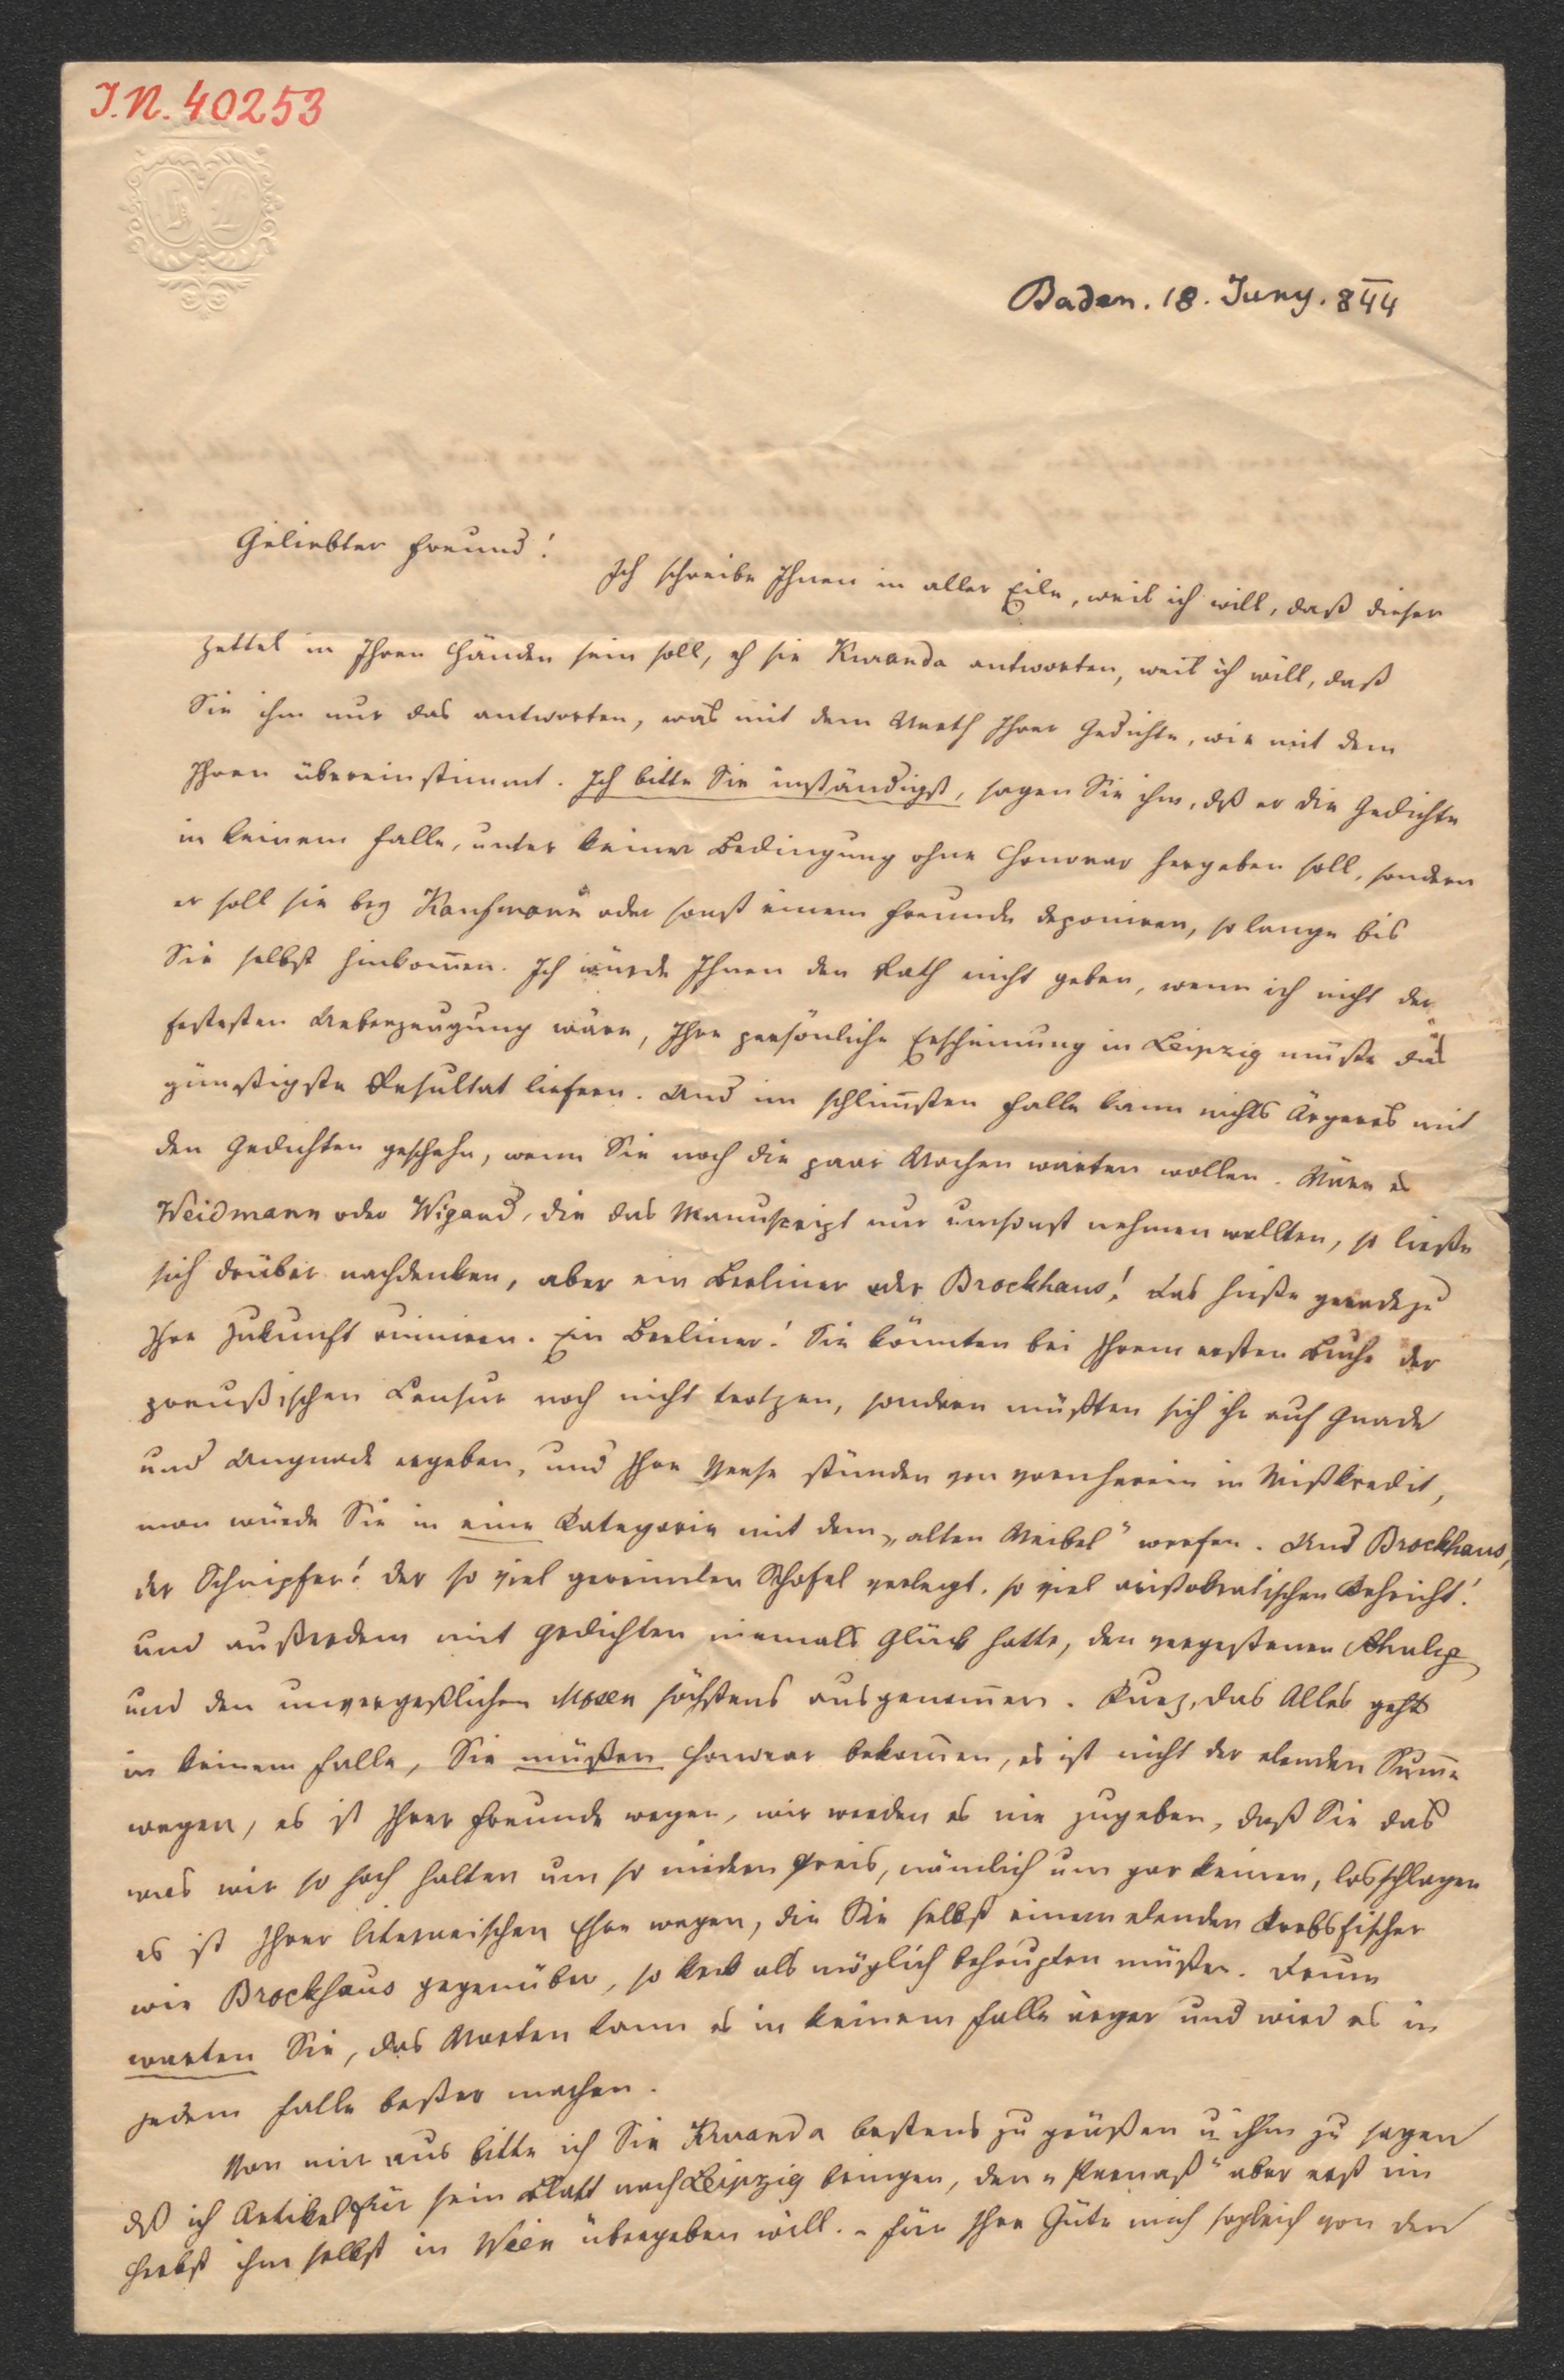 J.N. 40253
Baden. 18. Juny. 844
Geliebter Freund!
Ich schreibe Ihnen in aller Eile, weil ich will, daß dieser
Zettel in Ihren Händen sein soll, eh sie Kuranda antworten, weil ich will, daß
Sie ihm nur das antworten, was mit dem Werth Ihrer Gedichte, wie mit dem
Ihren übereinstimmt. Ich bitte Sie inständigst, sagen Sie ihm, dß er die Gedichte
in keinem Falle, unter keiner Bedingung ohne Honorar hergeben soll, sondern
er soll sie bey Kaufmann oder sonst einem Freunde deponiren, so lange bis
Sie selbst hinkom̅en. Ich würde Ihnen den Rath nicht geben, wenn ich nicht der
festesten Ueberzeugung wäre, Ihre persönliche Erscheinung in Leipzig müßte das
günstigste Resultat liefern. Und im schlim̅sten Falle kann nichts Ärgeres mit
den Gedichten geschehn, wenn Sie noch die paar Wochen warten wollen. Wäre es
Weidmann oder Wigand, die das Manuskript nur umsonst nehmen wollten, so ließe
sich drüber nachdenken, aber ein Berliner oder Brockhaus! das hieße geradezu
Ihre Zukunft ruiniren. Ein Berliner! Sie könnten bei Ihrem ersten Buche der
preußischen Censur noch nicht trotzen, sondern müßten sich ihr auf Gnade
und Ungnade ergeben, und Ihre Verse stünden von vornherein in Mißkredit,
man würde Sie in eine Kategorie mit dem „alten Weibel" werfen. Und Brockhaus,
der Schnipfer! der so viel gereimten Schofel verlegt, so viel aristokratischen Kehricht!
und außerdem mit Gedichten niemals Glück hatte, den vergeßenen Schulze
und den unvergeßlichen Mosen höchstens ausgenom̅en. Kurz, das Alles geht
in keinem Falle, Sie müßen Honorar bekom̅en, es ist nicht der elenden Sum̅e
wegen, es ist Ihrer Freunde wegen, wir werden es nie zugeben, daß Sie das
was wir so hoch halten um so niedern Preis, nämlich um gar keinen, losschlagen
es ist Ihrer literarischen Ehre wegen, die Sie selbst einem elenden Krebsfischer
wie Brockhaus gegenüber, so keck als möglich behaupten müßen. Drum
warten Sie, das Warten kann es in keinem Falle ärger und wird es in
jedem Falle beßer machen.
Von mir aus bitte ich Sie Kuranda bestens zu grüßen u ihm zu sagen
dß ich Artikel für sein Blatt nach Leipzig bringen, den „Parnaß" aber erst im
Herbst ihm selbst in Wien übergeben will. - Für Ihre Güte mich sogleich von den